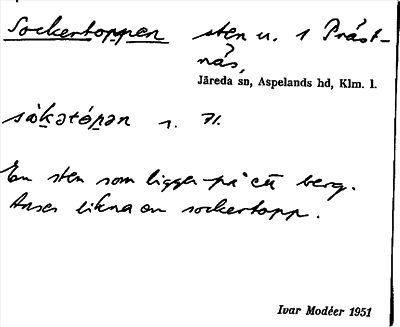 Sockertoppen sten u. 1 Präst-
näs,
Järeda sn, Aspelands hd, Klm. l.
sòk̲ətóp̲ən
En sten som ligger på ett berg.
Anses likna en sockertopp.
Ivar Modéer 1951